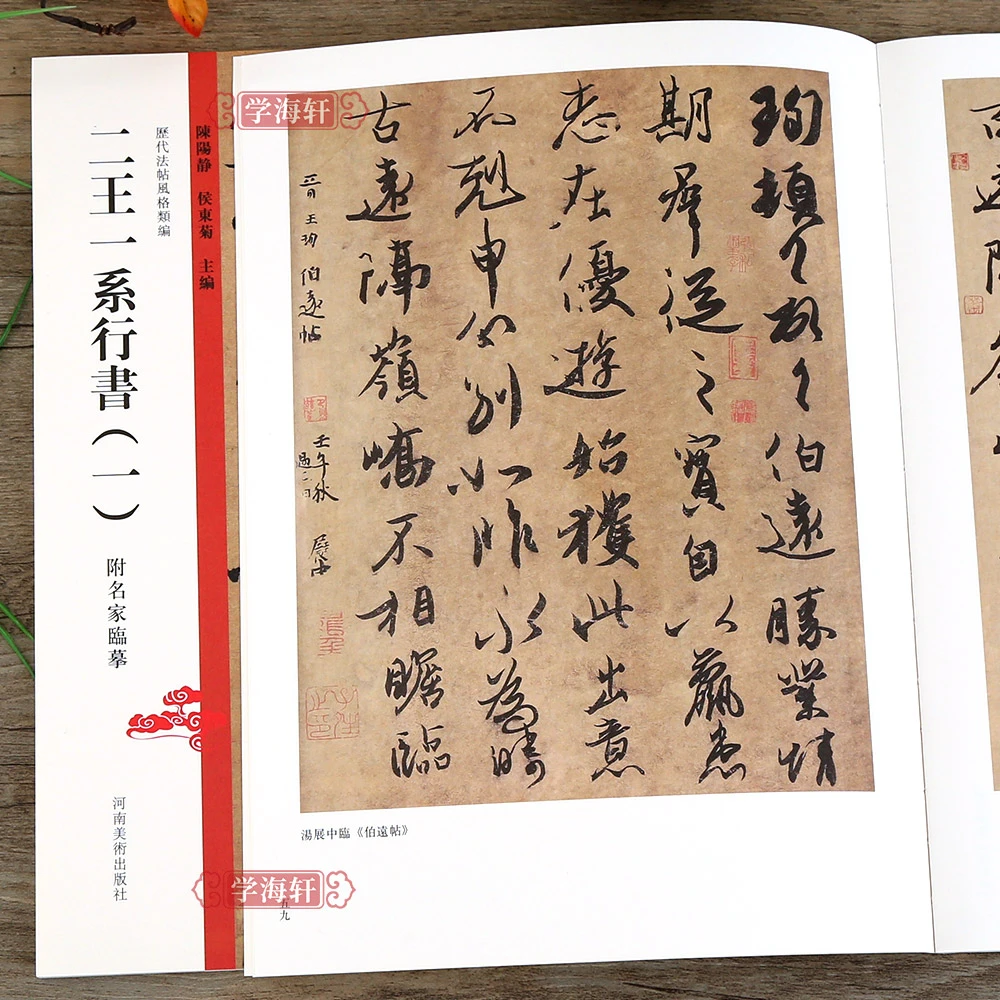 學海軒
歷代法帖風格類編
二王一系行書(一)
附名家臨摹
陳陽静 侯東菊 主編
河南美術出版社
珣頓首頓首伯遠勝業情
期群從之寶自以羸患
志在優遊始獲此出意
不剋申分別如昨永為疇
古遠隔嶺嶠不相瞻臨
晉 王珣 伯遠帖
壬午秋
湯展中臨《伯遠帖》
學海軒
五九